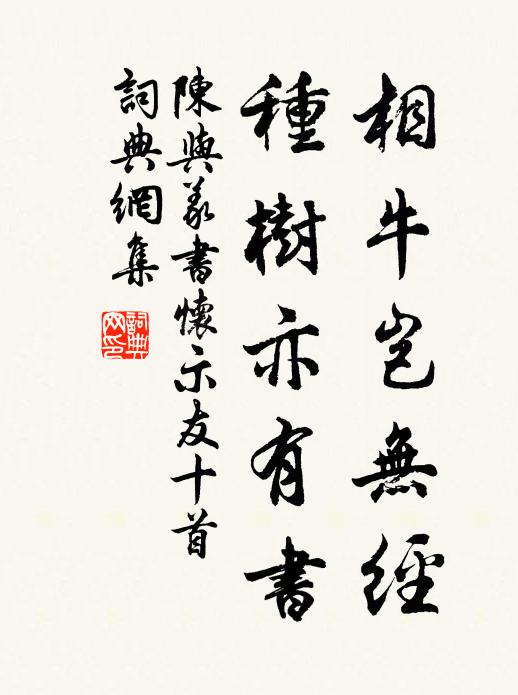 相牛岂無經
種樹亦有書
陳與義書懷示友十首
詞典網集
詞典网印